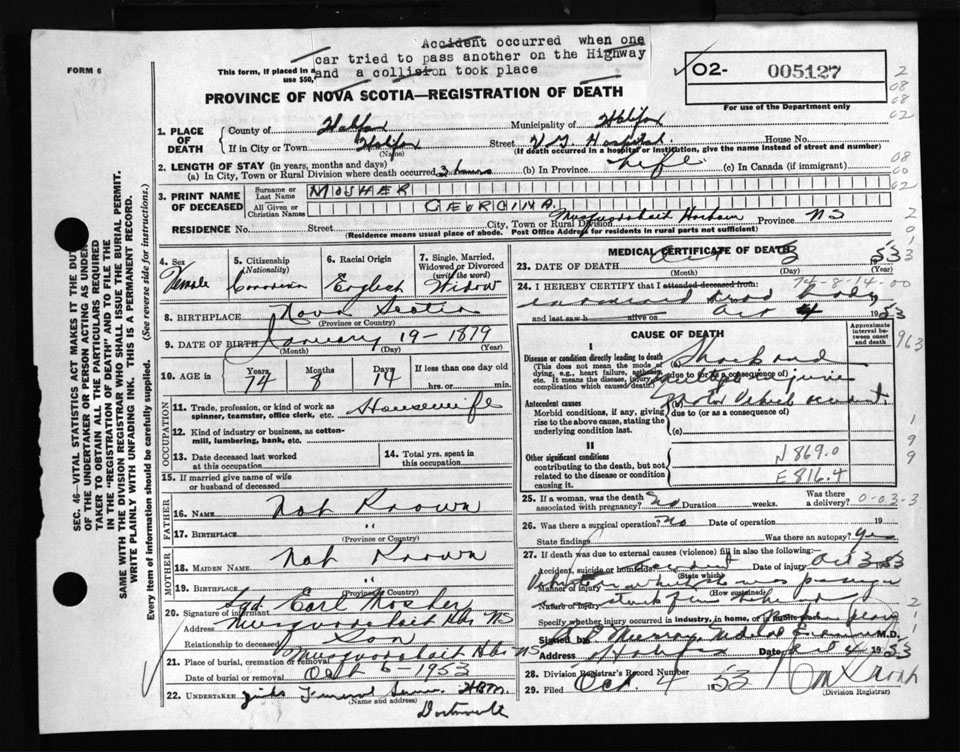 Accident occurred when one
car tried to pass another on the Highway
and a collision took place
FORM 6
This form, if placed in a
use $50,
O2- 005127
For use of the Department only
PROVINCE OF NOVA SCOTIA—REGISTRATION OF DEATH
1. PLACE OF DEATH
County of Halifax Municipality of Halifax
If in City or Town Halifax Street V.G. Hospital House No.
(Name) (If death occurred in a hospital or institution, give the name instead of street and number)
2. LENGTH OF STAY (in years, months and days)
(a) In City, Town or Rural Division where death occurred 3 hours (b) In Province Life (c) in Canada (if immigrant)
3. PRINT NAME OF DECEASED
Surname or Last Name MOSHER
All Given or Christian Names GEORGINA
RESIDENCE No. Street City, Town or Rural Musquodoboit Harbour Province NS
(Residence means usual place of abode. Post Office Address for residents in rural parts not sufficient)
4. Sex
Female
5. Citizenship
(Nationality)
Canadian
6. Racial Origin
English
7. Single, Married, Widowed or Divorced
(write the word)
Widow
8. BIRTHPLACE Nova Scotia
(Province or Country)
9. DATE OF BIRTH January 19 - 1879
(Month) (Day) (Year)
10. AGE in
Years Months Days If less than one day old
74 8 14 hrs. or min.
OCCUPATION
11. Trade, profession, or kind of work as
spinner, teamster, office clerk, etc. Housewife
12. Kind of industry or business, as cotton-
mill, lumbering, bank, etc.
13. Date deceased last worked
at this occupation
14. Total yrs. spent in
this occupation
15. If married give name of wife
or husband of deceased
FATHER
16. NAME Not Known
17. BIRTHPLACE "
(Province or Country)
MOTHER
18. MAIDEN NAME Not Known
19. BIRTHPLACE "
(Province or Country)
20. Signature of informant Sgd. Earl Mosher
Address Musquodoboit Hbr NS
Relationship to deceased Son
21. Place of burial, cremation or removal Musquodoboit Hbr NS
Date of burial or removal Oct 6 1953
22. UNDERTAKER Funeral
(Name and address)
Dartmouth
MEDICAL CERTIFICATE OF DEATH
23. DATE OF DEATH Oct 3 1953
(Month) (Day) (Year)
24. I HEREBY CERTIFY that I attended deceased from:
74-8-14-00
examined dead body
and last saw h alive on Oct 4 1953
CAUSE OF DEATH
Approximate interval between onset and death
I
Disease or condition directly leading to death
(This does not mean the mode of dying, e.g., heart failure, asthenia, etc. It means the disease, injury or complication which caused death.)
Shock and
due to (or as a consequence of)
multiple injuries
Antecedent causes
Morbid conditions, if any, giving rise to the above cause, stating the underlying condition last.
Motor Vehicle accident
due to (or as a consequence of)
(c)
II
Other significant conditions
contributing to the death, but not related to the disease or condition causing it.
N869.0
E816.4
25. If a woman, was the death
associated with pregnancy? No Duration weeks. Was there a delivery?
0-03-3
26. Was there a surgical operation? No Date of operation 19
State findings Was there an autopsy? Yes
27. If death was due to external causes (violence) fill in also the following:
Accident, suicide or homicide? Accident Date of injury Oct 3 1953
(State which)
Manner of injury was passenger
(How sustained)
Nature of injury struck from behind
Specify whether injury occurred in industry, in home, or in public place
Signed by Murray Medical Examiner M.D.
Address Halifax Date Oct 4 1953
28. Division Registrar's Record Number
29. Filed Oct. 4 1953
(Division Registrar)
SEC. 46—VITAL STATISTICS ACT MAKES IT THE DUTY
OF THE UNDERTAKER OR PERSON ACTING AS UNDER-
TAKER TO OBTAIN ALL THE PARTICULARS REQUIRED
IN THE "REGISTRATION OF DEATH" AND TO FILE THE
SAME WITH THE DIVISION REGISTRAR WHO SHALL ISSUE THE BURIAL PERMIT.
WRITE PLAINLY WITH UNFADING INK. THIS IS A PERMANENT RECORD.
Every item of information should be carefully supplied. (See reverse side for instructions.)